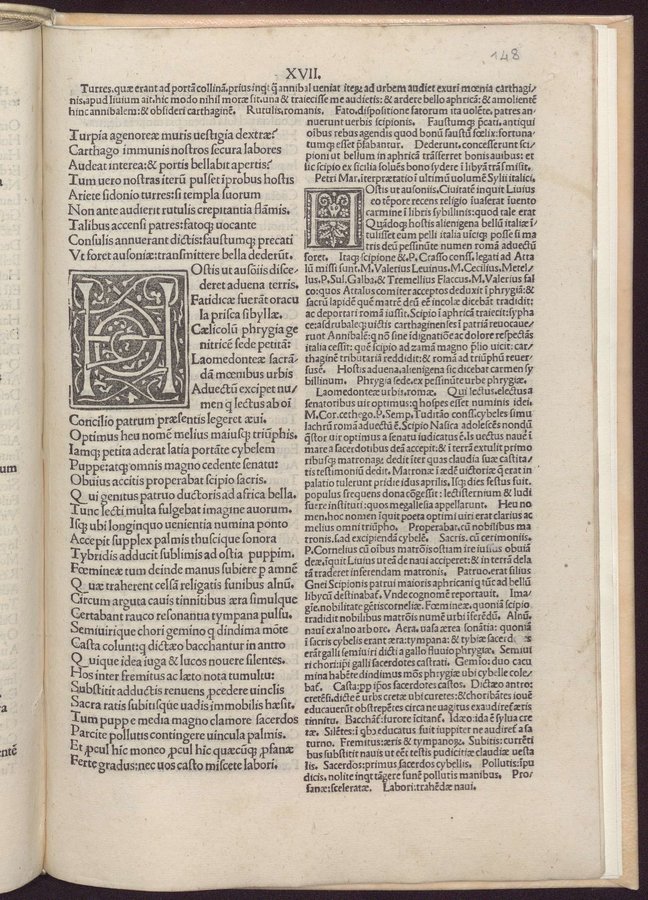 148
XVII.
Turres. quæ erant ad portā collinā. prius inq̄t q̄ annibal ueniat itex̨ ad urbem audiet exuri mœnia carthagi/
nis. apud liuium ait. hic modo nihil moræ sit. una & traiecisse me audietis: & ardere bello aphricā: & amolientē
hinc annibalem: & obsideri carthaginē. Rutulis. romanis. Fato. dispositione fatorum ita uolēte. patres an/
Turpia agenoreæ muris uestigia dextræ?
Carthago immunis nostros secura labores
Audeat interea: & portis bellabit apertis?
Tum uero nostras iterū pulset īprobus hostis
Ariete sidonio turres: si templa suorum
Non ante audierit rutulis crepitantia flāmis.
Talibus accensi patres: fatoq; uocante
Consulis annuerant dictis: faustumq; precati
Vt foret ausoniæ: transmittere bella dederūt.
HOstis ut ausōiis disce/
deret aduena terris.
Fatidicæ fuerāt oracu
la prisca sibyllæ.
Cælicolū phrygia ge
nitricē sede petitā:
Laomedonteæ sacrā/
dā mœnibus urbis
Aduectū excipet nu/
men q̄ lectus ab oī
Concilio patrum præsentis legeret æui.
Optimus heu nomē melius maiusq; triūphis.
Iamq; petita aderat latia portāte cybelem
Puppe: atq; omnis magno cedente senatu:
Obuius accitis properabat scipio sacris.
Qui genitus patruo ductoris ad africa bella.
Tunc lecti multa fulgebat imagine auorum.
Isq; ubi longinquo uenientia numina ponto
Accepit supplex palmis thuscique sonora
Tybridis adducit sublimis ad ostia puppim.
Fœmineæ tum deinde manus subiere p̄ amnē
Quæ traherent celsā religatis funibus alnū.
Circum arguta cauis tinnitibus æra simulque
Certabant rauco resonantia tympana pulsu.
Semiuirique chori gemino q̄ dindima mōte
Casta colunt: q̄ dictæo bacchantur in antro
Quique idea iuga & lucos nouere silentes.
Hos inter fremitus ac læto nota tumultu:
Substitit adductis renuens ꝓcedere uinclis
Sacra ratis subitisque uadis immobilis hæsit.
Tum puppe media magno clamore sacerdos
Parcite pollutis contingere uincula palmis.
Et ꝓcul hic moneo ꝓcul hic quæcūq; ꝓfanæ
Ferte gradus: nec uos casto miscete labori.
nuerunt uerbis scipionis. Faustumq; p̄cati. antiqui
oībus rebus agendis quod bonū faustū fœlix: fortuna/
tumq; esset p̄fabantur. Dederunt. concesserunt sci/
pioni ut bellum in aphricā trāsferret bonis auibus: et
sic scipio ex sicilia soluēs bono sydere ī libyā trāsmisit.
Petri Mar. īterp̄tatio ī ultimū uolumē Sylii italici.
HOstis ut ausoniis. Ciuitatē inquit Liuius
eo tēpore recens religio īuaserat īuento
carmine ī libris sybillinis: quod tale erat
Quādoq; hostis alienigena bellū italiæ ī/
tulisset eum pelli italia uīciq; posse si ma
tris deū pessinūte numen romā aduectū
foret. Itaq; scipione &. P. Crasso conss. legati ad Atta
lū missi sunt. M. Valerius Leuinus. M. Cecilius. Metel/
lus. P. Sul. Galba. & Tremellius Flaccus. M. Valerius fal
co: quos Attalus comiter acceptos deduxit ī phrygiā: &
sacrū lapidē quē matrē drū eē incolæ dicebāt tradidit:
ac deportari romā iussit. Scipio ī aphricā traiecit: sypha
ce: asdrubaleq; uictis carthaginenses ī patriā reuocaue/
runt Annibalē: q nō sine īdignatiōe ac dolore respectās
italia cessit: quē scipio ad zamā magno p̄lio uicit: car/
thaginē tributariā reddidit: & romā ad triūphū reuer/
susē. Hostis aduena. alienigena sic dicebat carmen sy
billinum. Phrygia sede. ex pessinūte urbe phrygiæ.
Laomedonteæ urbis. romæ. Qui lectus. electus a
senatoribus uir optimus: q̄ hospes esset numinis idei.
M. Cor. cethego. P. Semp. Tuditāo conss. cybeles simu
lachrū romā aduectū ē. Scipio Nasica adolescēs nondū
q̄stor uir optimus a senatu iudicatus ē. Is uectus nauē ī
mare a sacerdotibus deā accepit: & ī terrā extulit primo
ribusq; matronaꝶ dedit īter quas claudia suæ castita/
tis testimoniū dedit. Matronæ ī ædē uictoriæ q̄ erat in
palatio tulerunt pridie idus aprilis. Isq; dies festus fuit.
populus frequens dona cōgessit: lectisternium & ludi
fuere instituti: quos megallesia appellarunt. Heu no
men. hoc nomen īquit poeta optimi uiri erat clarius ac
melius omni triūpho. Properabat. cū nobilibus ma
tronis. sad excipiendā cybelē. Sacris. cū cerimoniis.
P. Cornelius cū oībus matrōis ostiam ire iussus obuiā
deæ. īquit Liuius ut eā de naui acciperet: & in terrā dela
tā traderet inferendam matronis. Patruo. erat filius
Gnei Scipionis patrui maioris aphricani q tūc ad bellū
libycū destinabat̄. Vnde cognomē reportauit. Ima/
gie. nobilitate gētis corneliæ. Fœmineæ. quoniā scipio
tradidit nobilibus matrōis numē urbi īferēdū. Alnū.
nauī ex alno arbore. Aera. uasa ærea sonātia: quoniā
ī sacris cybelis erant æra: tympana: & tybiæ sacerdotes
erāt galli semiuiri dicti a gallo fluuio phrygiæ. Semiui
ri chori: īpi galli sacerdotes castrati. Gemīo: duo cacu
mina habēte dindimus mōs phrygiæ ubi cybele cole/
bat̄. Casta: pp̄ īp̄os sacerdotes castos. Dictæo antro:
cretēsi. dicte ē urbs cretæ ubi curetes: & choribātes iouē
educauerūt obstrepētes circa ne uagitus exaudiret̄ æris
tinnitu. Bacchāt̄: furore īcitāt̄. Idæo: ida ē sylua cre
tæ. Silētes: ī qb̄s educatus fuit iuppiter ne audiret̄ a sa
turno. Fremitus: æris & tympanoꝶ. Subitis: currēti
bus substitit nauis ut eēt testis pudicitiæ claudiæ uesta
lis. Sacerdos: primus sacerdos cybellis. Pollutis: īpu
dicis. nolite inqt tāgere funē pollutis manibus. Pro/
fanæ: sceleratæ. Labori: trahēdæ naui.